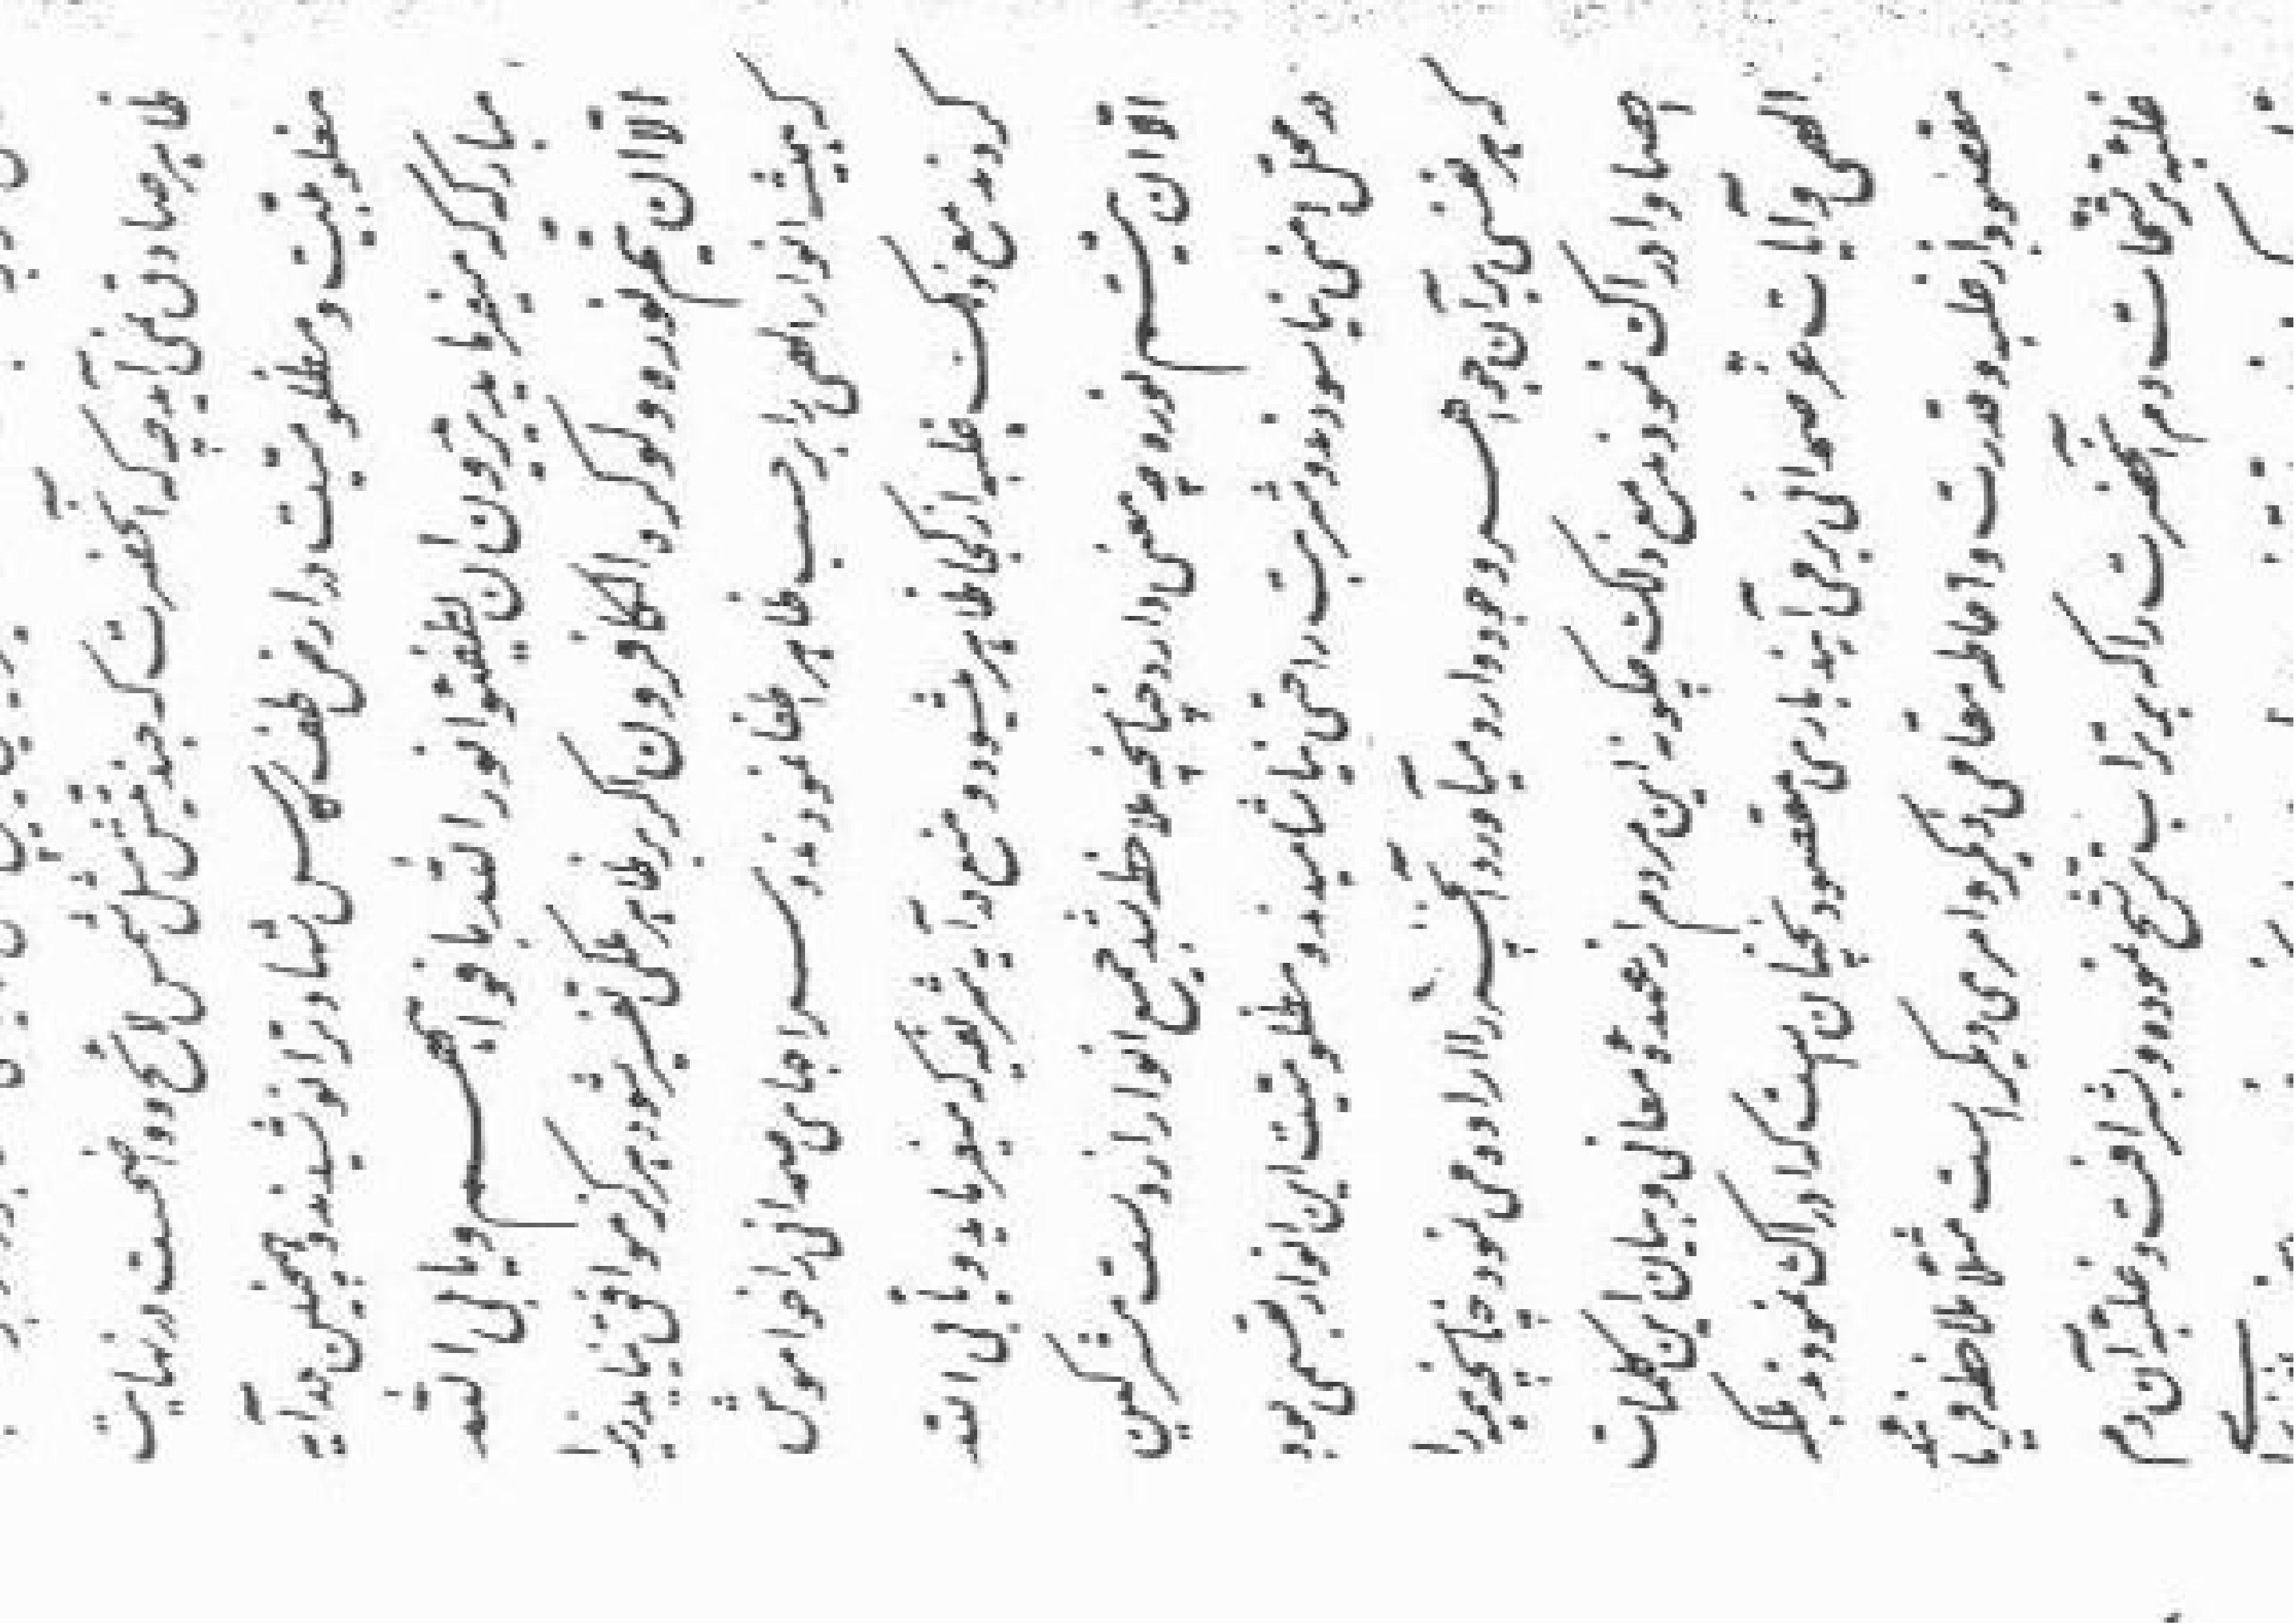 ظاهر صادق نمی‌آید چه که آنحضرت که جند نفس مثل شمس لائح و واضحست در نهایت
مغلوبیت و مظلومیت در ارض طف کأس شهادت را نوشیدند و همچنین در آیه
مبارکه که میفرماید یریدون ان یطفئوا نور الله بافواههم و یابی الله
الا ان یتم نوره و لو کره الکافرون که اگر بظاهر ملکی تفسیر شود هرگز موافق نیاید زیرا
که همیشه انوار الهی را بر حسب ظاهر اطفا نمودند و سراجهای صمدانی را خاموش
کردند مع ذلک غلبه از کجا ظاهر میشود و منع در آیه شریفه که میفرماید و یابی الله
الا ان یتم نوره چه معنی دارد چنانچه ملاحظه شد جمیع انوار از دست مشرکین
در محل امنی نیاسودند و شربت راحتی نیاشامیدند و مظلومیت این انوار بقسمی بود
که هر نفسی بر آن جواهر وجود وارد میآورد آنچه را اراده می نمود چنانچه همه را
احصا و ادراک نمودند مع ذلک چگونه این مردم از عهده معانی و بیان این کلمات
الهی و آیات عز صمدانی برمی آیند باری مقصود نچنان است که ادراک نمودند بلکه
مقصود از غلبه و قدرت و احاطه مقامی دیگر و امری دیگر است مثلا ملاحظه فرمائید
غلبه ترشحات دم آنحضرت را که بر تراب ترشح نموده و بشرافت و غلبه آن دم